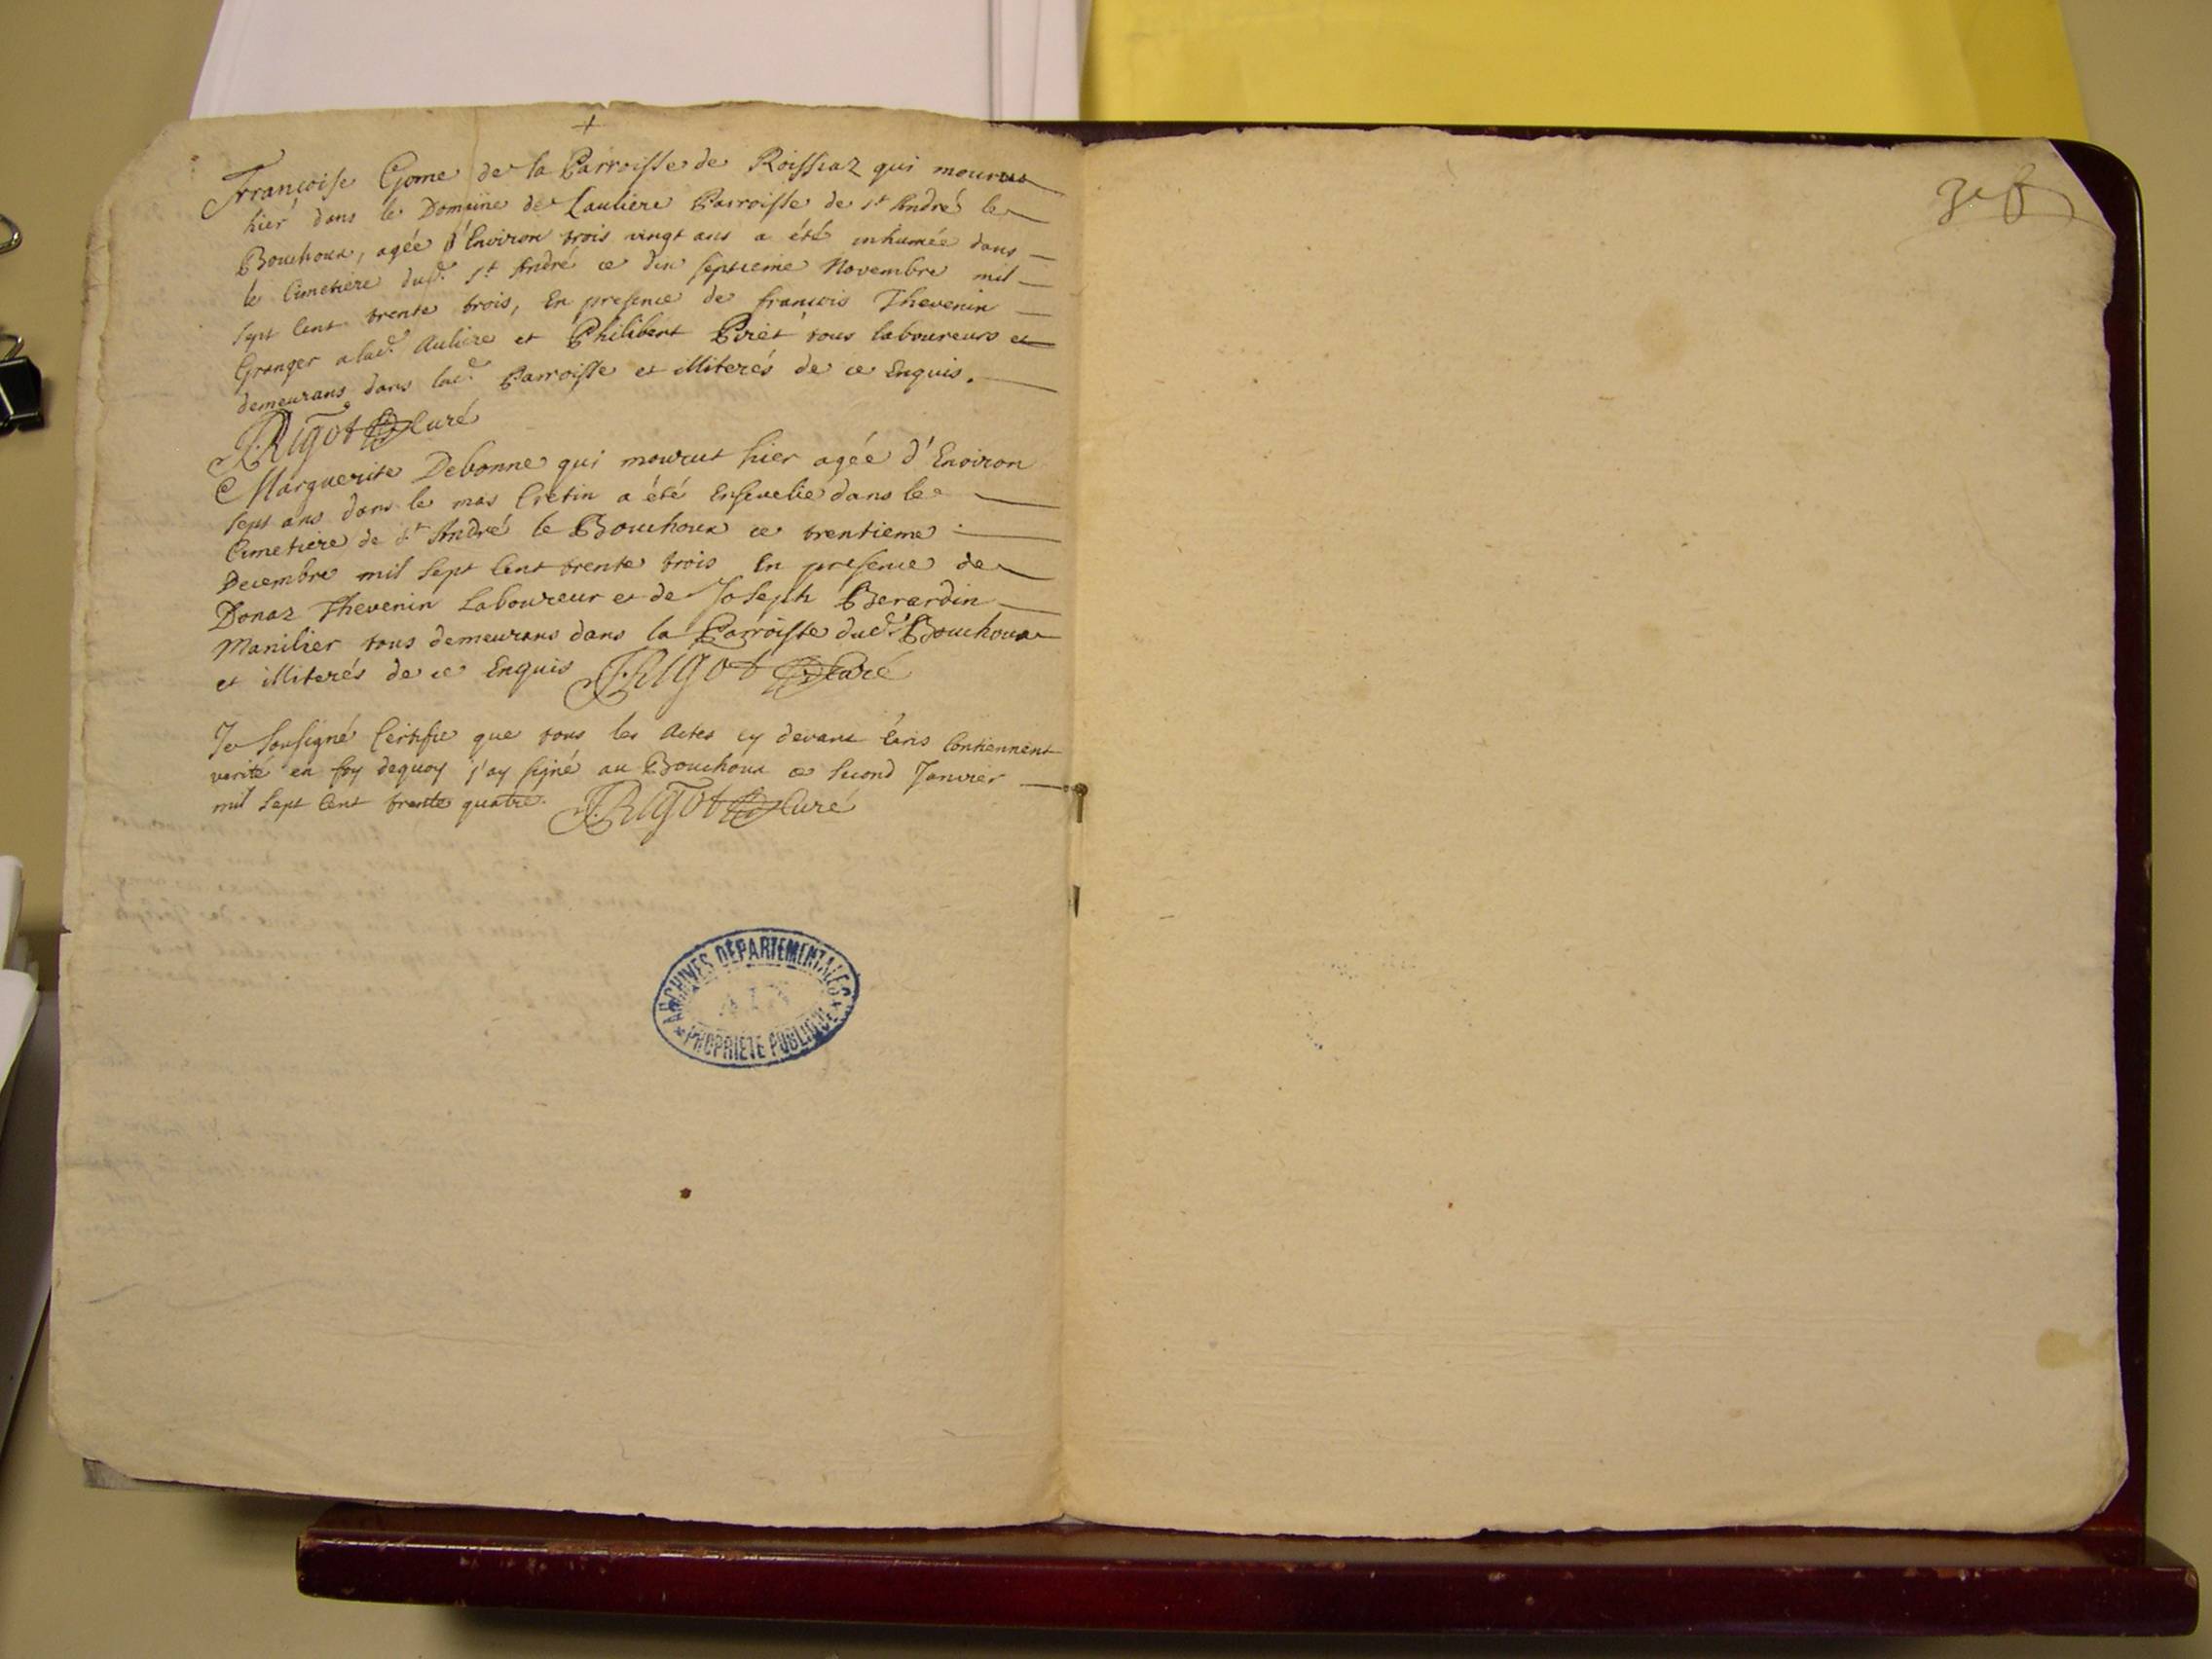 +
Françoise Gome de la Parroisse de Roissiaz qui mourut
hier dans le Domaine de Lauliere Parroisse de st André le
Bouchoux, agée d'Environ trois vingt ans a été inhumée dans
le Cimetiere dud. st André ce dix septieme Novembre mil
sept Cent trente trois, En presence de françois Thevenin
Granger alad. Auliere et Philibert Piret tous laboureurs et
demeurans dans lad. Parroisse et illiterés de ce Enquis.
J. Rigot Curé
Marguerite Debonne qui mourut hier agée d'Environ
sept ans dans le mas Cretin a été Ensevelie dans le
Cimetiere de st André le Bouchoux ce trentieme
Decembre mil sept Cent trente trois En presence de
Donaz Thevenin Laboureur et de Joseph Berardin
Manilier tous demeurans dans la Parroisse dud. Bouchoux
et illiterés de ce Enquis J. Rigot Curé
Je soussigné Certifie que tous les Actes cy devant Ecris Contiennent
verité en foy dequoy j'ay signé au Bouchoux ce second Janvier
mil sept Cent trente quatre. J. Rigot Curé
ARCHIVES DÉPARTEMENTALES
PROPRIÉTÉ PUBLIQUE